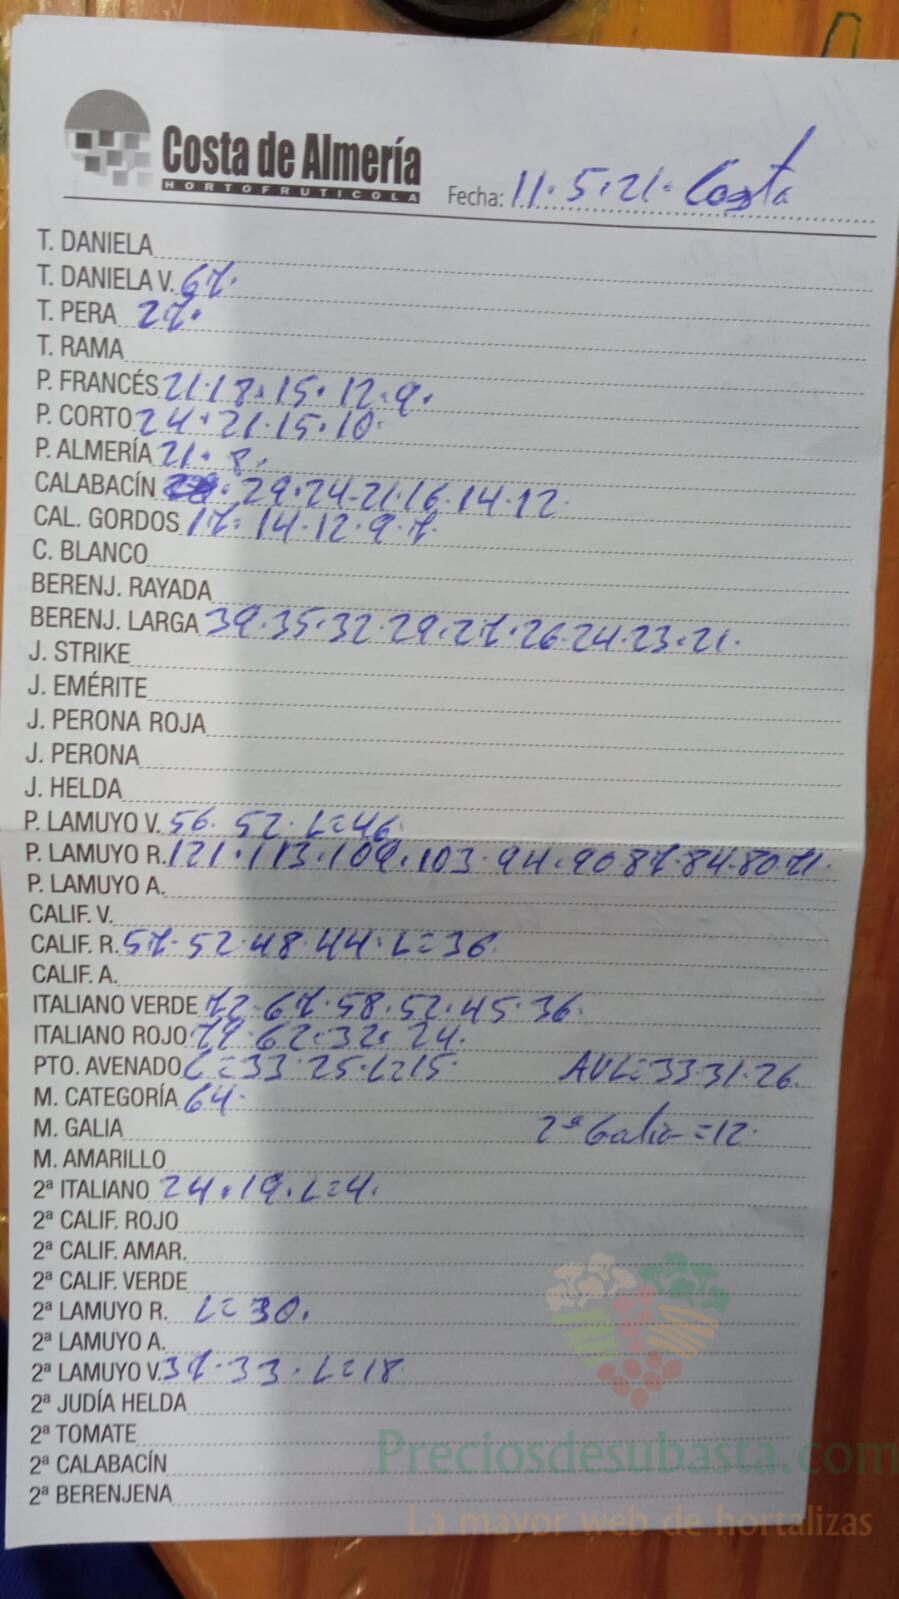 Costa de Almería
HORTOFRUTICOLA
Fecha: 11.5.21. Costa
T. DANIELA
T. DANIELA V. 67.
T. PERA 27.
T. RAMA
P. FRANCÉS 21.18.15.12.9.
P. CORTO 24.21.15.10.
P. ALMERÍA 21.8.
CALABACÍN 29.24.21.16.14.12.
CAL. GORDOS 17.14.12.9.7.
C. BLANCO
BERENJ. RAYADA
BERENJ. LARGA 39.35.32.29.27.26.24.23.21.
J. STRIKE
J. EMÉRITE
J. PERONA ROJA
J. PERONA
J. HELDA
P. LAMUYO V. 56.52.L=46.
P. LAMUYO R. 121.113.109.103.94.90.87.84.80.71.
P. LAMUYO A.
CALIF. V.
CALIF. R. 57.52.48.44.L=36.
CALIF. A.
ITALIANO VERDE 72.67.58.52.45.36.
ITALIANO ROJO 62.32.24.
PTO. AVENADO L=33.25.L=15. AVL=33.31.26.
M. CATEGORÍA 64.
M. GALIA 2ª Galia=12.
M. AMARILLO
2ª ITALIANO 24.19.L=4.
2ª CALIF. ROJO
2ª CALIF. AMAR.
2ª CALIF. VERDE
2ª LAMUYO R. L=30.
2ª LAMUYO A.
2ª LAMUYO V. 37.33.L=18
2ª JUDÍA HELDA
2ª TOMATE
2ª CALABACÍN
2ª BERENJENA
Preciosdesubasta.com
La mayor web de hortalizas